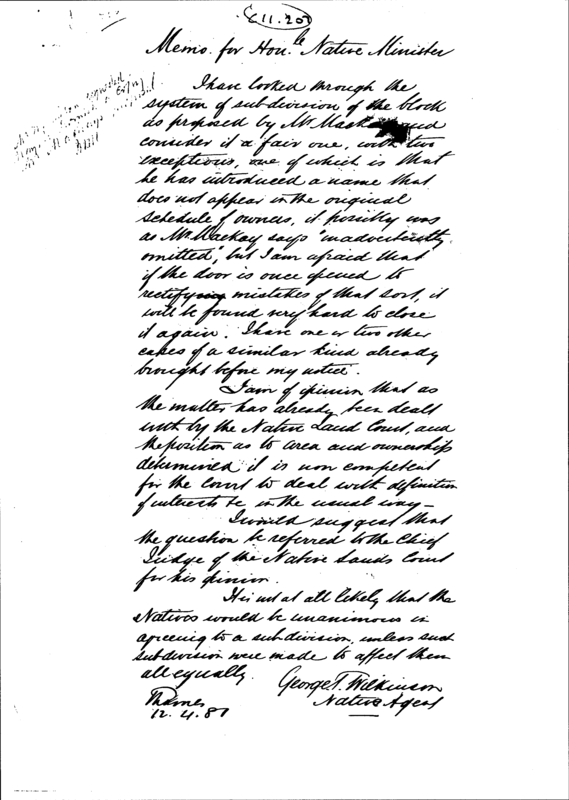 £11.200
Memo. for Hon.ble Native Minister
I have looked through the
system of subdivision of the block
as proposed by Mr Mackay and
consider it a fair one, with two
exceptions, one of which is that
he has introduced a name that
does not appear in the original
schedule of owners, it possibly was
as Mr Mackay says "inadvertently
omitted", but I am afraid that
if the door is once opened to
rectifying mistakes of that sort, it
will be found very hard to close
it again. I have one or two other
cases of a similar kind already
brought before my notice.
I am of opinion that as
the matter has already been dealt
with by the Native Land Court, and
the position as to area and ownership
determined it is now competent
for the Court to deal with definition
of interests &c in the usual way—
I would suggest that
the question be referred to the Chief
Judge of the Native Lands Court
for his opinion.
It is not at all likely that the
Natives would be unanimous in
agreeing to a subdivision, unless such
subdivision were made to affect them
all equally.
George T. Wilkinson
Native Agent
Thames
12.4.81